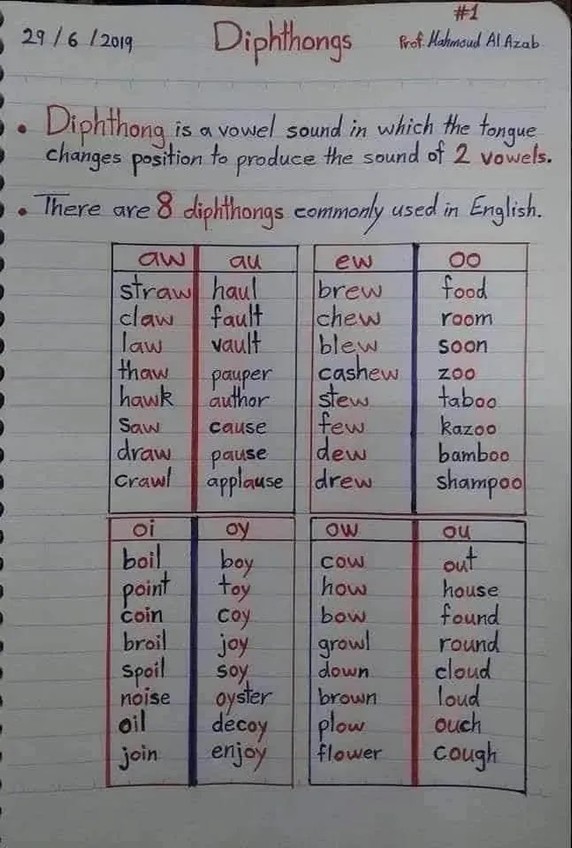 #1
29/6/2019 Diphthongs Prof. Mahmoud Al Azab
• Diphthong is a vowel sound in which the tongue
changes position to produce the sound of 2 vowels.
• There are 8 diphthongs commonly used in English.
aw au ew oo
straw haul brew food
claw fault chew room
law vault blew soon
thaw pauper cashew zoo
hawk author stew taboo
saw cause few kazoo
draw pause dew bamboo
crawl applause drew shampoo
oi oy ow ou
boil boy cow out
point toy how house
coin coy bow found
broil joy growl round
spoil soy down cloud
noise oyster brown loud
oil decoy plow ouch
join enjoy flower cough